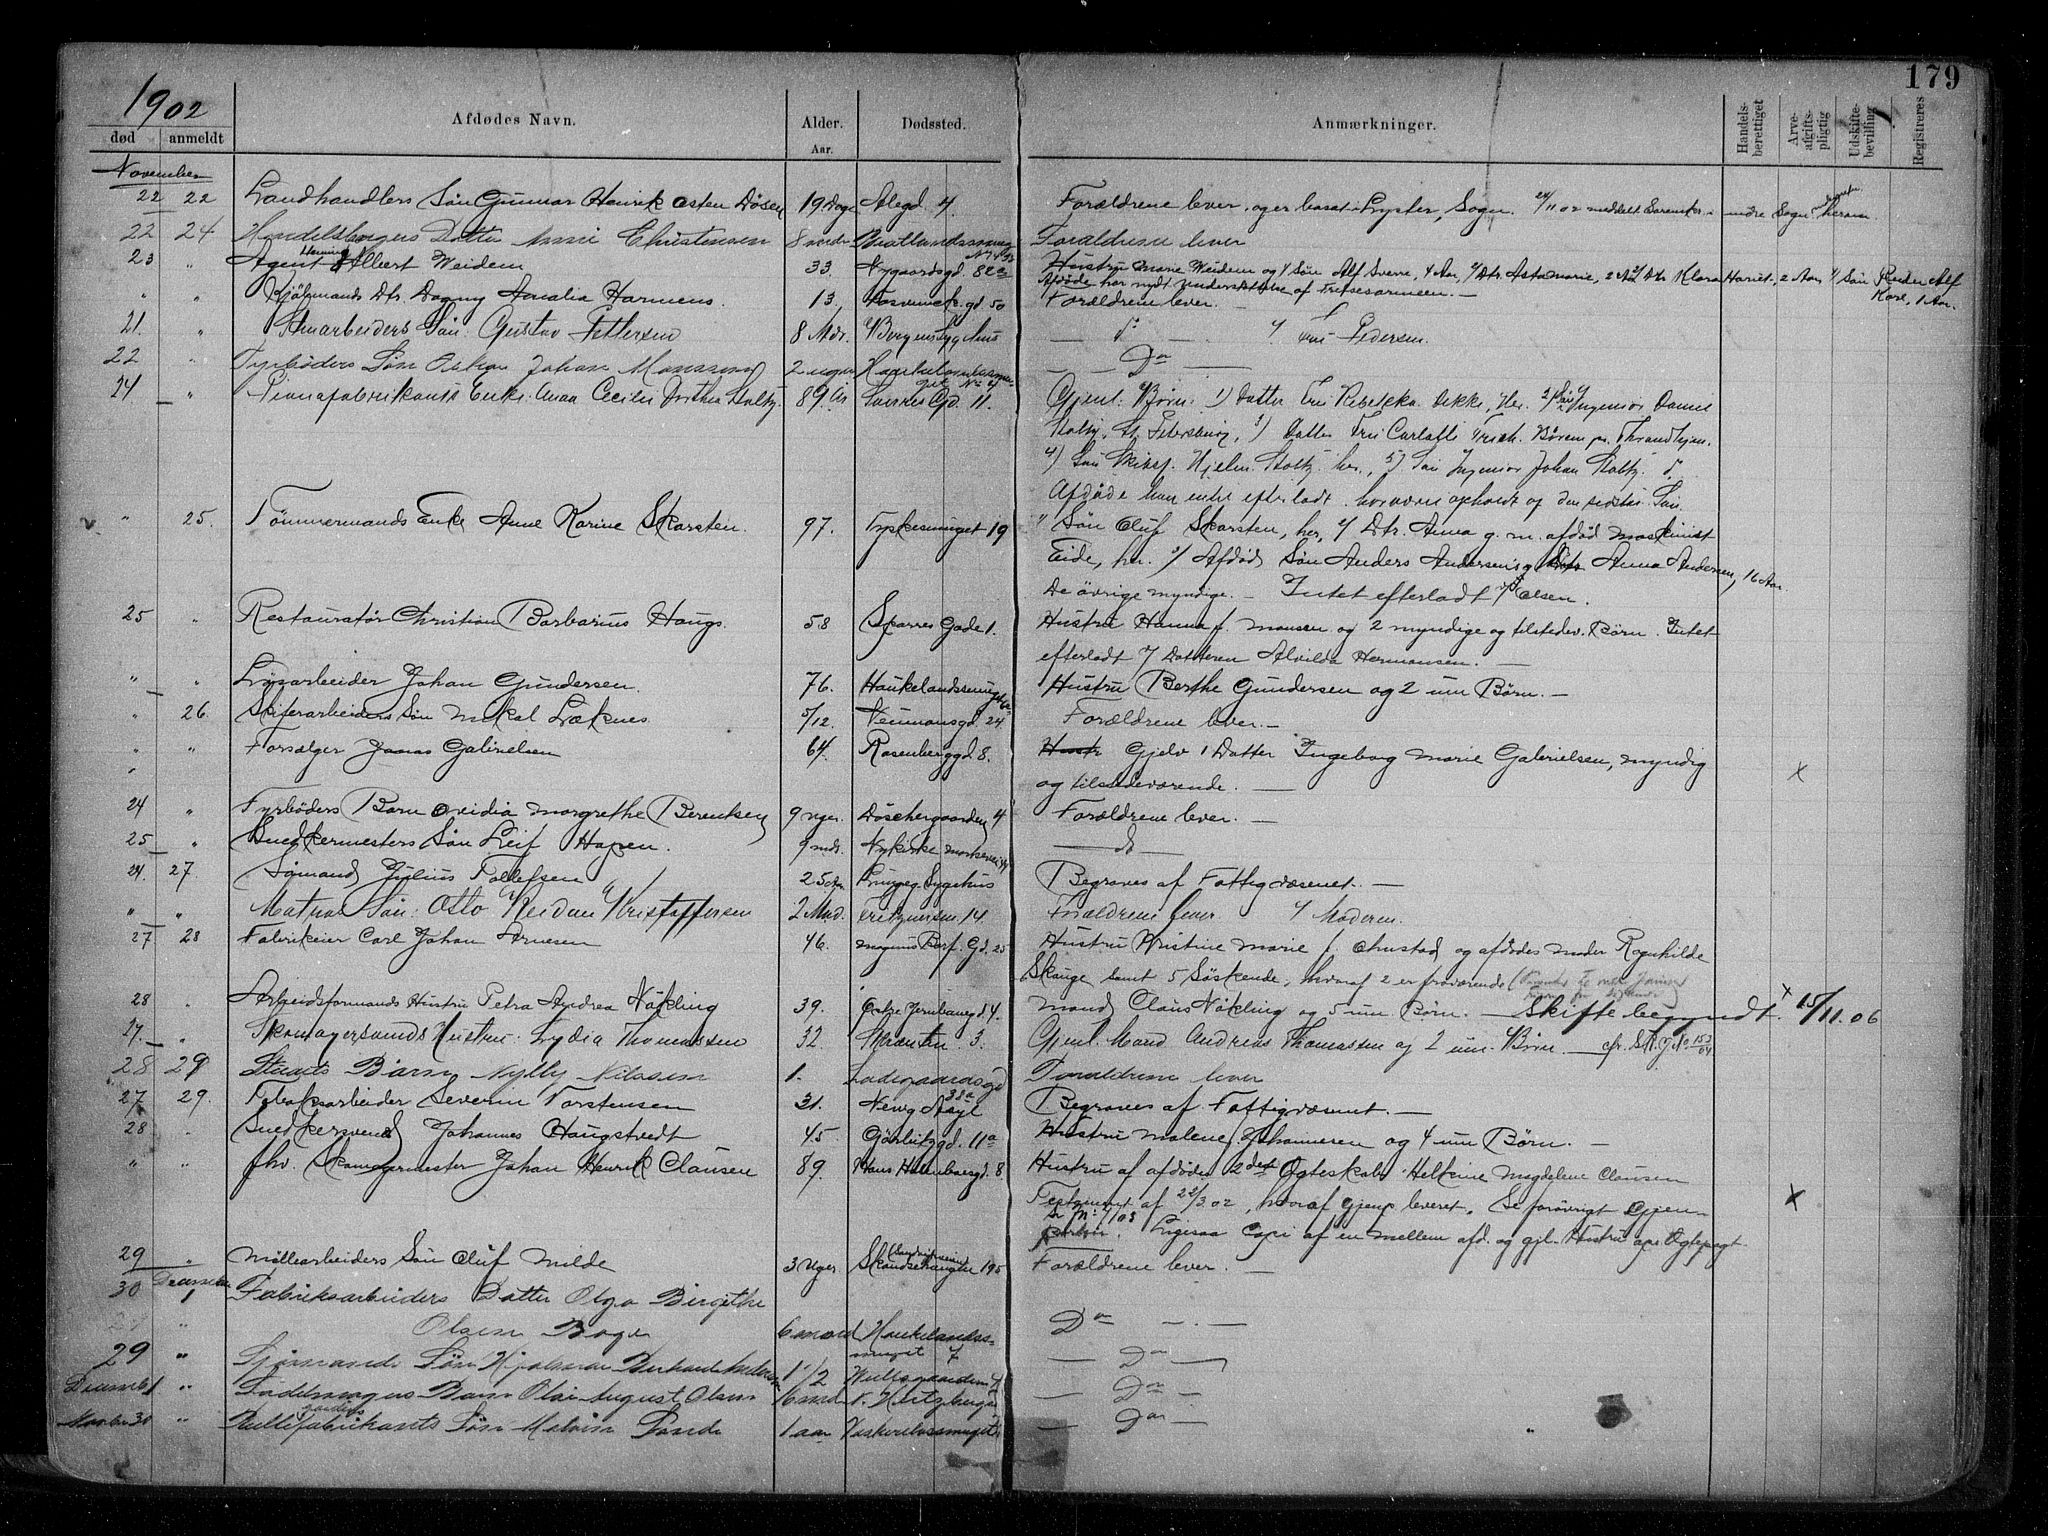 179
1902
død anmeldt Afdødes Navn. Alder. Aar. Dødssted. Anmærkninger. Handels-berettiget Arve-afgifts-pligtig Udskifte-bevilling Registreres
November
22 22 Landhandlers Søn Gunnar Henrik Østen Døsen 19 Dage Alegd. 4. Forældrene lever, og er bosat i Lyster, Sogn. 24/11 02 meddelt Sorensk. i indre Sogn herom
22 24 Handelsborgers Datter Anni Christensen 8 mdr Forældrene lever
23 " Agent Henning Albert Weidem 33. Nygaardsgd. 82 Hustru Marie Weidem og 1/ Søn Alf Sverre, 4 Aar, 2/ Dtr. Asta Marie, 2 Aar 3/ Dtr Klara Hariet, 2 Aar, 4/ Søn Reidar Alf
Kore, 1 Aar.
Afdøde har nydt Understøttelse af Frelsesarmeen. —
" " Kjøbmands Dtr. Dagny Amalia Harmens. 13, gd 50 Forældrene lever.
21. " Stenarbeiders Søn Gustav Pettersen 8 Mdr. Bergens Sygehus — d° — Pedersen.
22 " Fyrbøders Søn Johan Monssen 2 uger — Do —
24 " Pianofabrikants Enke Anna Cecilie Dorthea Stoltz. 89 Ar Sverres Gd. 11. Gjenl. Børn: 1) Datter Fru Rebekka Dekke, Her. 2) Søn Ingeniør Daniel
Stoltz, St. Petersburg, 3) Datter Fru Carlotte Børem pr. Throndhjem.
4) Søn Skibsf. Hjelm. Stoltz her, 5) Søn Ingeniør Johan Stoltz. d°
Afdøde har intet efterladt, har været opholdt og den sidste Søn.
" 25. Tømmermands Enke Anne Karine Skarsten. 97. Tyskesmuget 19 1/ Søn Oluf Skarsten, her, 2/ Dtr. Anna g. m. afdød Maskinist
Eide, her. 3/ Afdød Søn Anders Andersens Dtr Anna Andersen, 16 Aar.
De øvrige myndige. — Intet efterladt Olsen.
25 " Restauratør Christian Barbarius Haugs. 58 Sparres Gade 1. Hustru Hanna f. Monsen og 2 myndige og tilstedev. Børn. Intet
efterladt 4/ Datteren Alvilda Hermansen. —
" " Løsarbeider Johan Gundersen. 76. Haukelandssmuget Hustru Berthe Gundersen og 2 um Børn. —
" 26. Skiferarbeiders Søn Mikal Læknes 5/12 Neumansgd. 24 Forældrene lever. —
" " Forsølger Jonas Gabrielsen 64. Rosenberggd. 8. Gjelv 1 Datter Ingeborg Marie Gabrielsen, myndig
og tilstedeværende. — x
24 " Fyrbøders Barn Ovidia Margrethe Berentsen 9 uger. Døschergaarden 4 Forældrene lever. —
25 " Snedkermesters Søn Leif Hopen. 9 mdr. Nykirke — do —
24. 27. Sømand Julius Tollefsen 25 Aar Lungeg. Sygehus Begraves af Fattigvæsenet. —
" " Matros Søn: Otto Reidar Kristoffersen 2 Mnd. 14. Forældrene lever 4/ Moderen.
27 28 Fabrikeier Carl Johan Arnesen 46. Magnus Barf. Gd. 25 Hustru Kristine Marie f. Onustad og afdødes moder Ragnhilde
Skauge samt 5 Søskende, hvoraf 2 er fraværende
28 " Arbeidsformands Hustru Petra Andrea Nøkling 39. Østre Jernbanegd. 4. Mand Claus Nøkling og 5 um. Børn. — Skifte begyndt x 15/11.06
27. " Skomagersvends Hustru: Lydia Thomassen 32. Skranten 3. Gjenl. Mand Andreas Thomassen og 2 um. Børn. — cfr. Sk. j. No 153/04
28 29 Stuarts Barn Nylly Nilssen 1. Ladegaardsgd 38a Forældrene lever
27 29. Tobaksarbeider Severin Torstensen 31. Neevg. Asyl Begraves af Fattigvæsenet. —
28 " Snedkersvend Johannes Haugstvedt 45. Gjørbitzgd. 11a Hustru Malene Johannesen og 4 um Børn. —
" " fhv. Skomagermester Johan Henrik Clausen 89. Hans Holmboesgd. 8 Hustru af afdødes 2det Ægteskab Helkine Magdelene Clausen
Testament af 22/3.02, hvoraf Gjenp. leveret. Se forøvrigt Gjen-
Ligesaa Copi af en mellem afd. og gjl. Hustru opr. Ægtepagt. x
29 " Møllearbeiders Søn Oluf Milde 3 Uger Skandsehaugen 195 Forældrene lever. —
December
30 1 Fabriksarbeiders Datter Olga Birgithe
Olsen Boge 6 maaned Haukelandssmuget 7 Do — . —
29 " Sjømands Søn Hjalmar Berhard Andersen 1 1/2 — Do —
December 1 " Sadelmagers Barn Olai August Olsen 6 mdr — Do —
November 30 " Rullegardinfabrikants Søn Melvin Sande 1 aar Vaskerelvssmuget — Do —